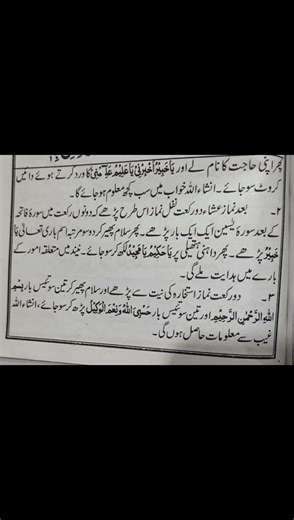 پھر اپنی حاجت کا نام لے اور یَاخَبِیْرُ اَخْبِرْنِیْ یَاعَلِیْمُ عَلِّمْنِیْ کا ورد کرتے ہوئے دائیں
کروٹ سو جائے۔ انشاء اللہ خواب میں سب کچھ معلوم ہو جائے گا۔
۲۔ بعد نماز عشاء دو رکعت نفل نماز اس طرح پڑھے کہ دونوں رکعت میں سورۂ فاتحہ
کے بعد سورۂ یٰسین ایک ایک بار پڑھے۔ پھر سلام پھیر کر دو سو مرتبہ اسم باری تعالیٰ یَا
خَبِیْرُ پڑھے۔ پھر داہنی ہتھیلی پر یَاحَکِیْمُ یَا مُجِیْدُ لکھ کر سو جائے۔ نیند میں متعلقہ امور کے
بارے میں ہدایت ملے گی۔
۳۔ دو رکعت نماز استخارہ کی نیت سے پڑھے اور سلام پھیر کر تین سو تیس بار بِسْمِ
اللہِ الرَّحْمٰنِ الرَّحِیْمِ اور تین سو تیس بار حَسْبِیَ اللہُ وَنِعْمَ الْوَکِیْلُ پڑھ کر سو جائے، انشاء اللہ
غیب سے معلومات حاصل ہوں گی۔